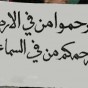 رحموا من في الارض
يرحمكم من في السماء